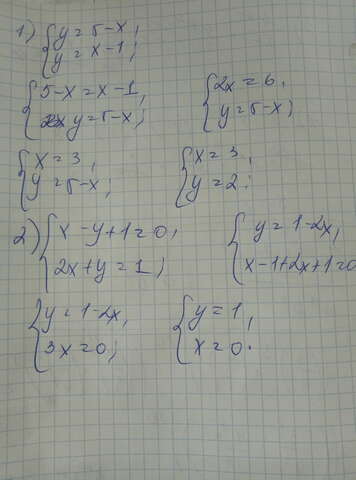 1) { y = 5-x,
y = x-1;
{ 5-x = x-1,
y = 5-x;
{ 2x = 6,
y = 5-x;
{ x = 3,
y = 5-x;
{ x = 3,
y = 2.
2) { x - y + 1 = 0,
2x + y = 1;
{ y = 1-2x,
x-1+2x+1=0
{ y = 1-2x,
3x = 0;
{ y = 1,
x = 0.